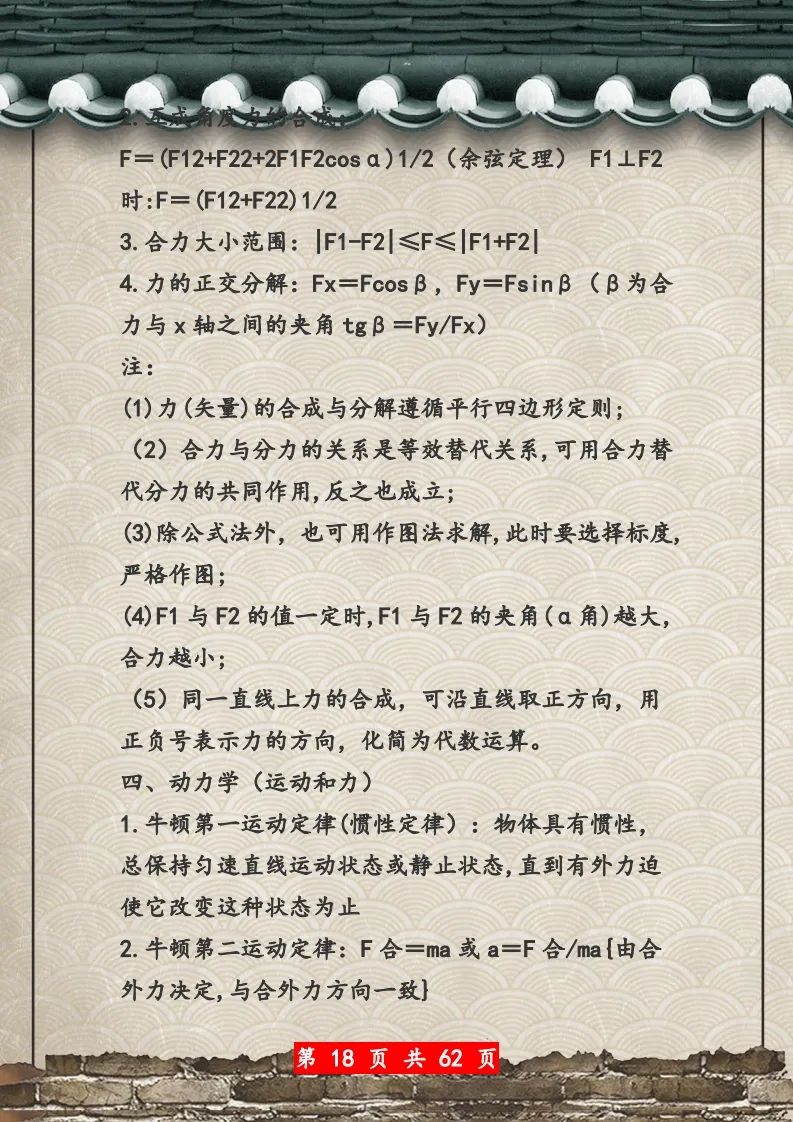 2.互成角度力的合成:
F＝(F12+F22+2F1F2cosα)1/2（余弦定理） F1⊥F2
时:F＝(F12+F22)1/2
3.合力大小范围：|F1-F2|≤F≤|F1+F2|
4.力的正交分解：Fx＝Fcosβ，Fy＝Fsinβ（β为合
力与x轴之间的夹角tgβ＝Fy/Fx）
注：
(1)力(矢量)的合成与分解遵循平行四边形定则;
（2）合力与分力的关系是等效替代关系,可用合力替
代分力的共同作用,反之也成立;
(3)除公式法外，也可用作图法求解,此时要选择标度,
严格作图;
(4)F1与F2的值一定时,F1与F2的夹角(α角)越大,
合力越小;
（5）同一直线上力的合成，可沿直线取正方向，用
正负号表示力的方向，化简为代数运算。
四、动力学（运动和力）
1.牛顿第一运动定律(惯性定律）：物体具有惯性，
总保持匀速直线运动状态或静止状态,直到有外力迫
使它改变这种状态为止
2.牛顿第二运动定律：F合＝ma或a＝F合/ma{由合
外力决定,与合外力方向一致}
第 18 页 共 62 页